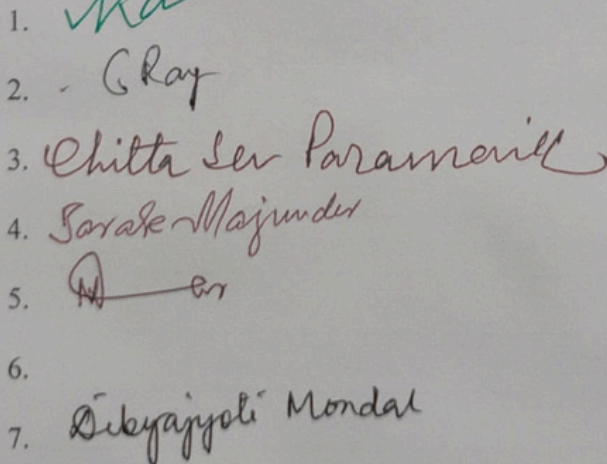 1.
2. G Ray
3. Chitta Sen Paramanik
4. Majumder
5.
6.
7. Dibyajyoti Mondal